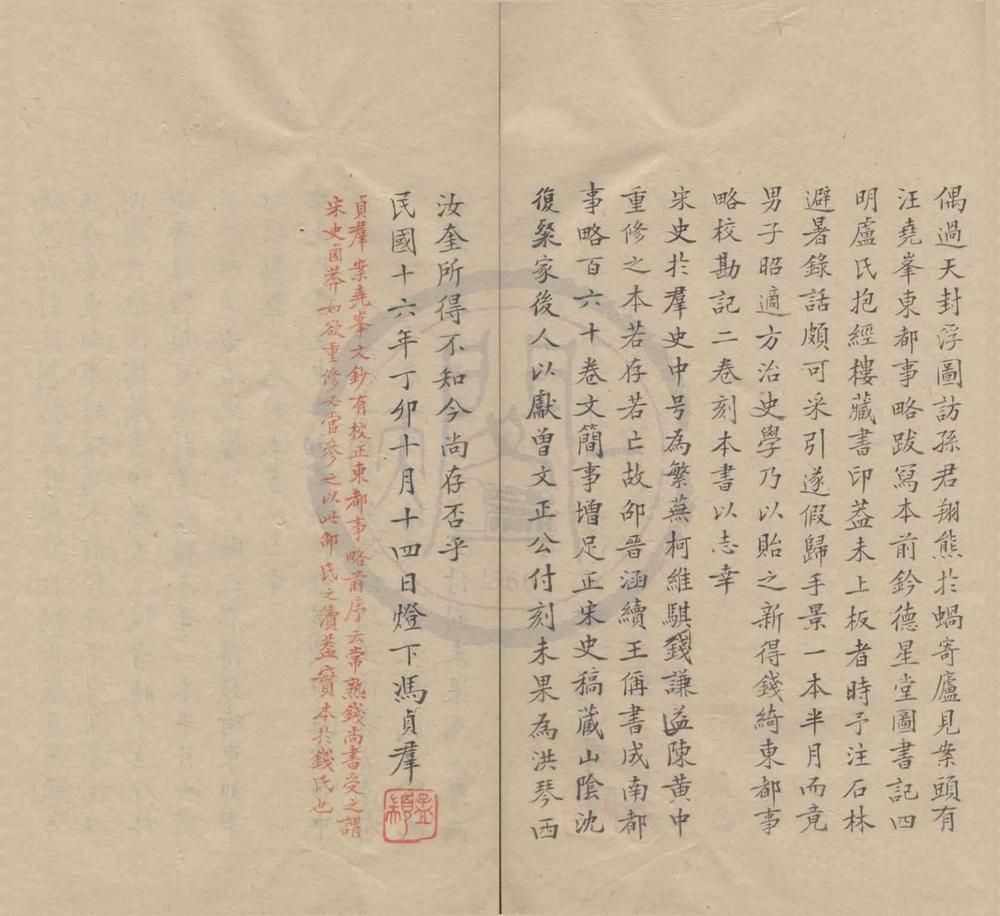 偶過天封浮圖訪孫君翔熊於蝸寄廬見案頭有
汪堯峯東都事略跋寫本前鈐德星堂圖書記四
明盧氏抱經樓藏書印蓋未上板者時予注石林
避暑錄話頗可采引遂假歸手景一本半月而竟
男子昭適方治史學乃以貽之新得錢綺東都事
略校勘記二卷刻本書以志幸
宋史於羣史中号為繁蕪柯維騏錢謙益陳黃中
重修之本若存若亡故邵晉涵續王偁書成南都
事略百六十卷文簡事增足正宋史稿藏山陰沈
復粲家後人以獻曾文正公付刻未果為洪琴西
汝奎所得不知今尚存否乎
民國十六年丁卯十月十四日燈下馮貞羣
孟顓
貞羣案堯峯文鈔有校正東都事略前序云常熟錢尚書受之謂
宋史鹵莽如欲重修必當參之以此邵氏之續蓋實本於錢氏也